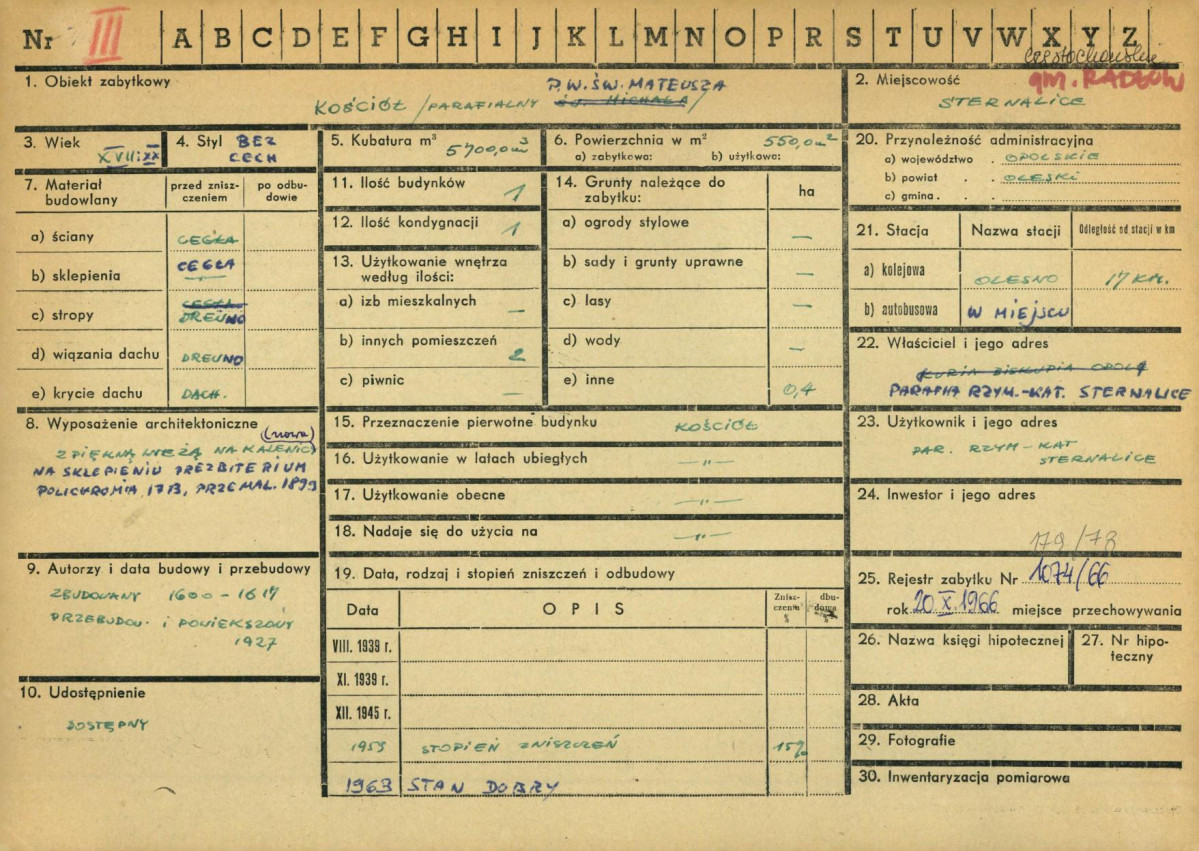 Nr III A B C D E F G H I J K L M N O P R S T U V W X Y Z
Częstochowskie
1. Obiekt zabytkowy
P.W. ŚW. MATEUSZA
KOŚCIÓŁ /PARAFIALNY ŚW. MICHAŁA/
2. Miejscowość
gm. RADŁÓW
STERNALICE
3. Wiek
XVII: XX
4. Styl BEZ
CECH
5. Kubatura m³
5700,0 m³
6. Powierzchnia w m² 550,0 m²
a) zabytkowa: b) użytkowa:
7. Materiał budowlany
przed zniszczeniem
po odbudowie
a) ściany CEGŁA
b) sklepienia CEGŁA
c) stropy CEGŁA
DREWNO
d) wiązania dachu DREWNO
e) krycie dachu DACH.
8. Wyposażenie architektoniczne
(nowa)
Z PIĘKNĄ WIEŻĄ NA KALENICY
NA SKLEPIENIU PREZBITERIUM
POLICHROMIA, 17 B, PRZEMAL. 1899
9. Autorzy i data budowy i przebudowy
ZBUDOWANY 1600 - 1617
PRZEBUDOW. I POWIĘKSZONY
1927
10. Udostępnienie
DOSTĘPNY
11. Ilość budynków 1
12. Ilość kondygnacji 1
13. Użytkowanie wnętrza
według ilości:
a) izb mieszkalnych —
b) innych pomieszczeń 2
c) piwnic —
14. Grunty należące do
zabytku:
ha
a) ogrody stylowe —
b) sady i grunty uprawne —
c) lasy —
d) wody —
e) inne 0,4
15. Przeznaczenie pierwotne budynku KOŚCIÓŁ
16. Użytkowanie w latach ubiegłych —"—
17. Użytkowanie obecne —"—
18. Nadaje się do użycia na —"—
19. Data, rodzaj i stopień zniszczeń i odbudowy
Data
OPIS
Zniszczenia %
dbudowa %
VIII. 1939 r.
XI. 1939 r.
XII. 1945 r.
1959 STOPIEŃ ZNISZCZEŃ 15%
1963 STAN DOBRY
20. Przynależność administracyjna
a) województwo . OPOLSKIE
b) powiat . . OLESKI
c) gmina . . .
21. Stacja
Nazwa stacji
Odległość od stacji w km
a) kolejowa OLESNO 17 KM.
b) autobusowa W MIEJSCU
22. Właściciel i jego adres
KURIA BISKUPIA OPOLE
PARAFIA RZYM.-KAT. STERNALICE
23. Użytkownik i jego adres
PAR. RZYM-KAT
STERNALICE
24. Inwestor i jego adres
179/78
25. Rejestr zabytku Nr 1074/66
rok 20.X.1966 miejsce przechowywania
26. Nazwa księgi hipotecznej
27. Nr hipoteczny
28. Akta
29. Fotografie
30. Inwentaryzacja pomiarowa